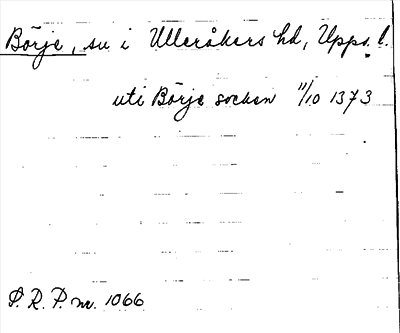 Börje, sn i Ulleråkers hd, Upps. l.
uti Börje socken 11/10 1373
S. R. P. nr. 1066